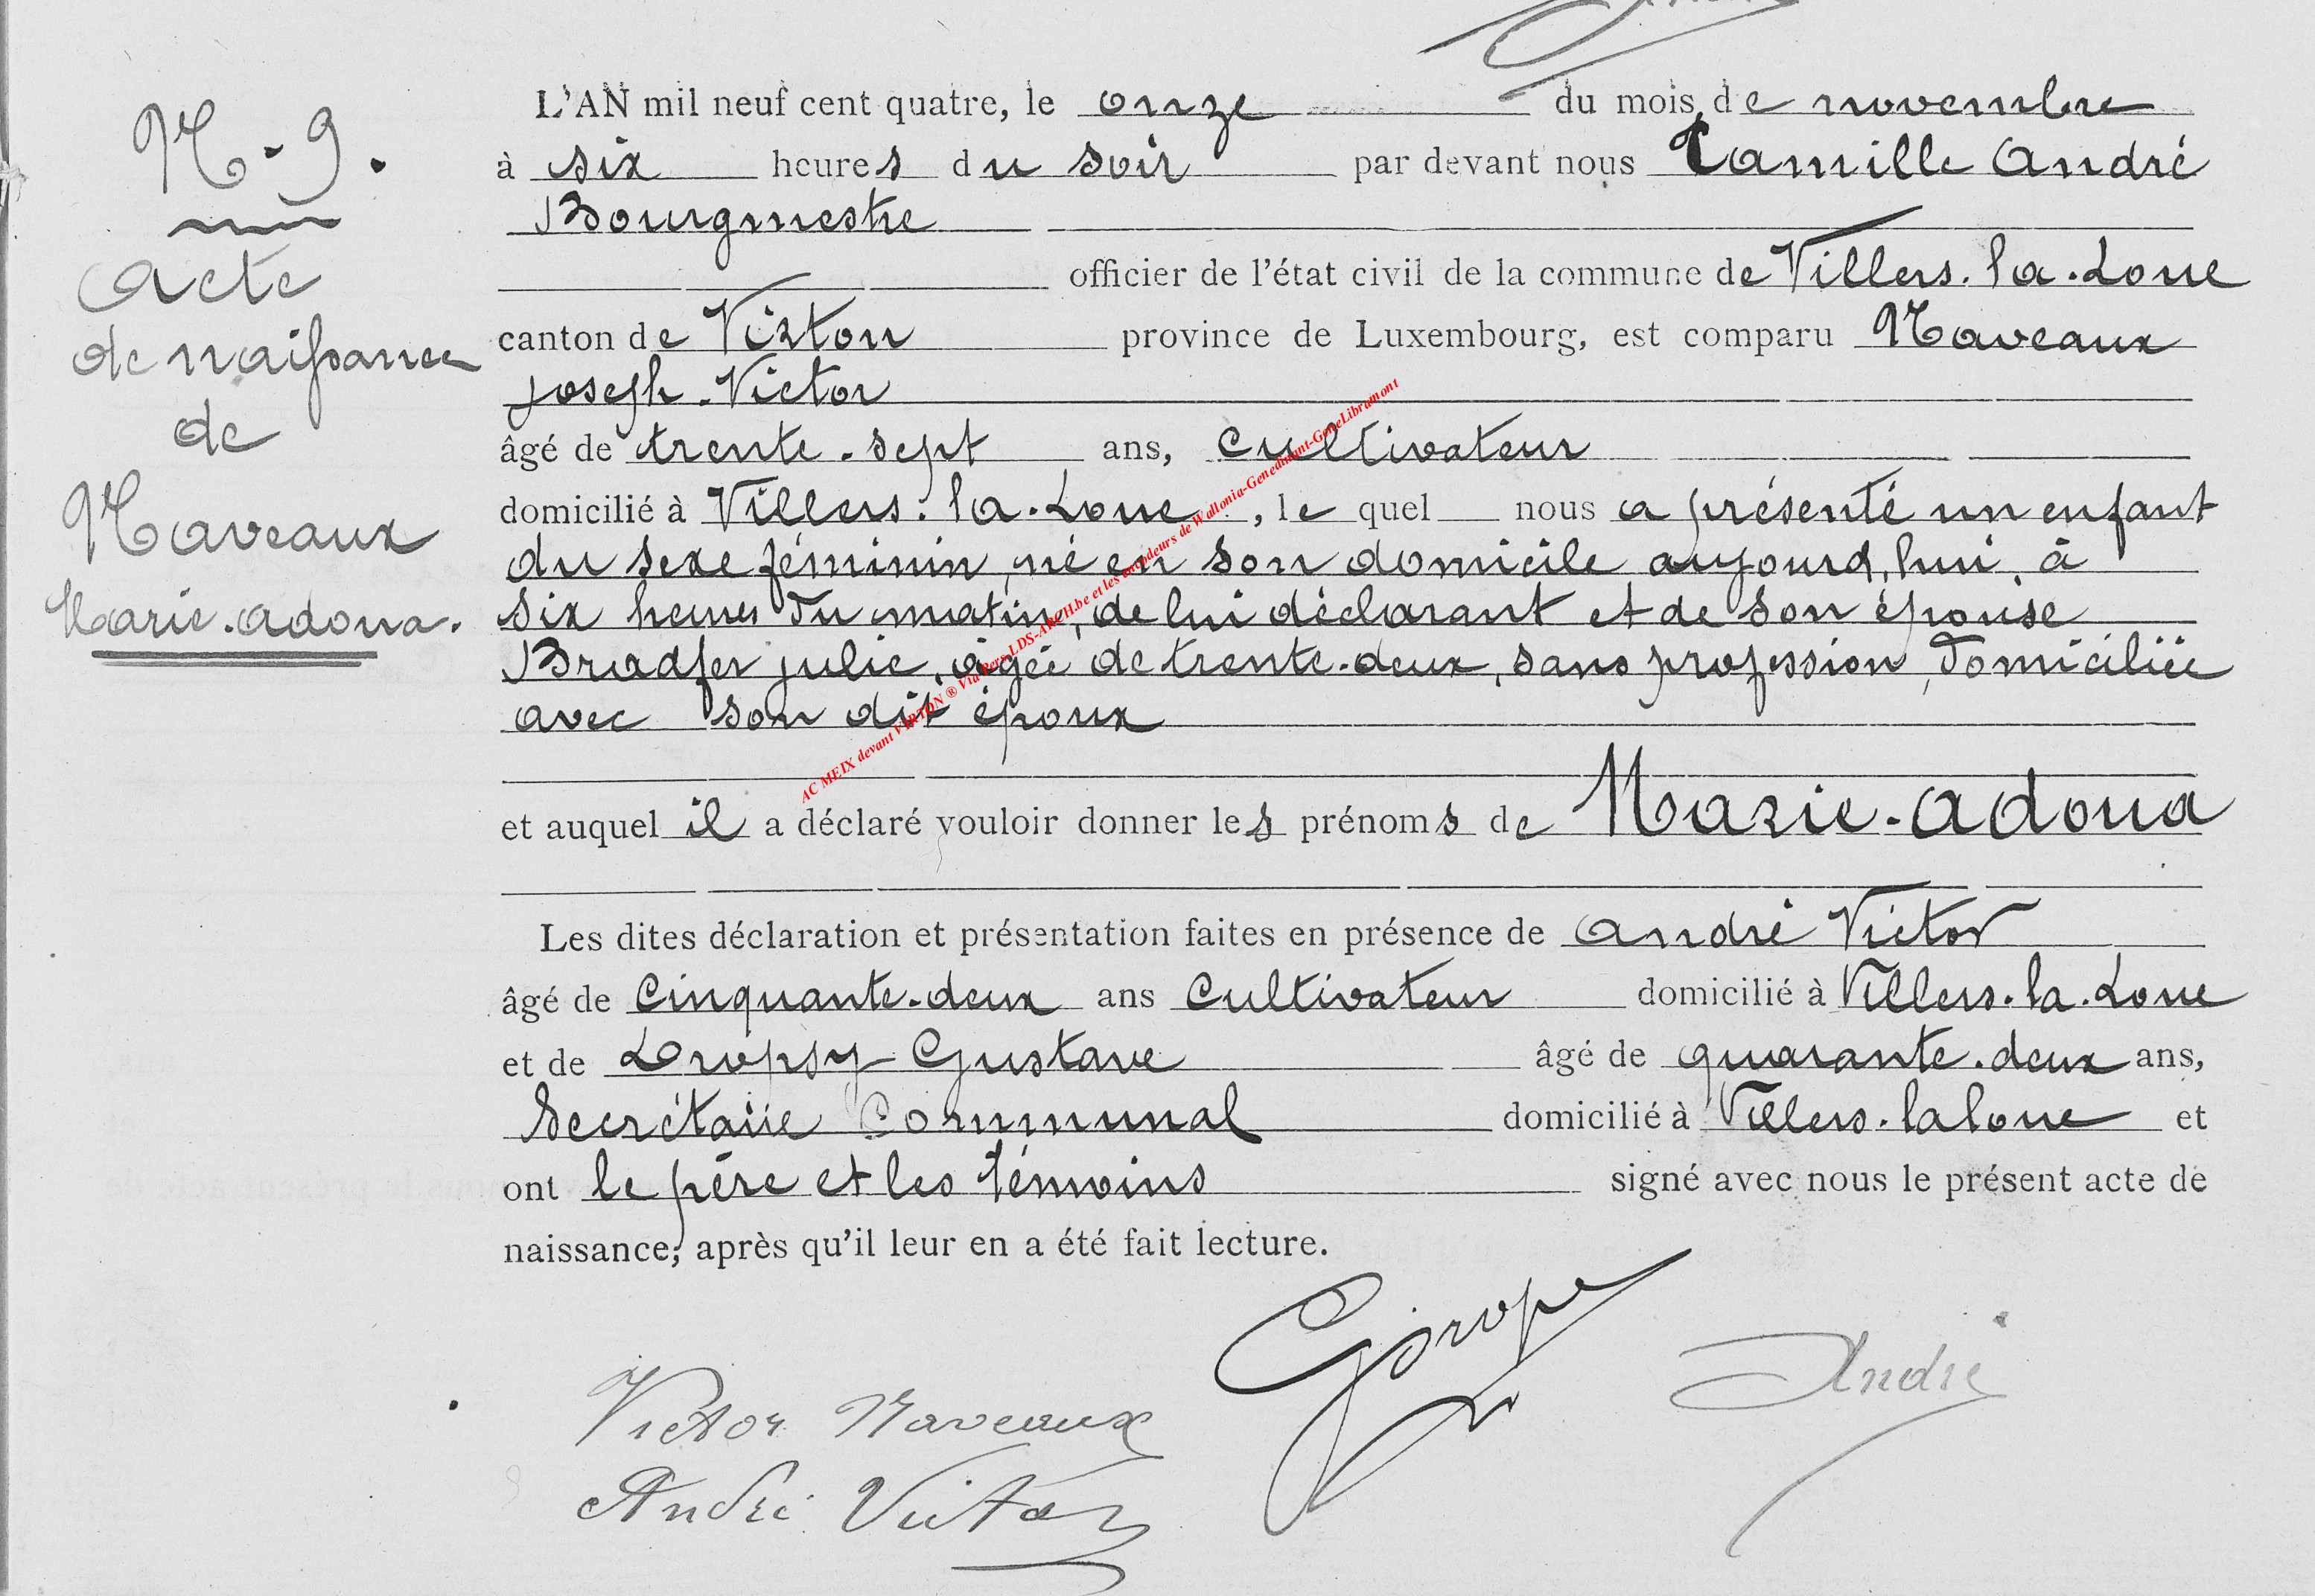 N-9.
Acte
de naissance
de
Naveaux
Marie-Adoua.
L'AN mil neuf cent quatre, le onze du mois de novembre
à six heures du soir par devant nous Camille André
Bourgmestre
officier de l'état civil de la commune de Villers-la-Loue
canton de Virton province de Luxembourg, est comparu Naveaux
Joseph-Victor
âgé de trente-sept ans, Cultivateur
domicilié à Villers-la-Loue, le quel nous a présenté un enfant
du sexe féminin, né en son domicile aujourd'hui, à
six heures du matin, de lui déclarant et de son épouse
Bradfer julie, âgée de trente-deux, sans profession, domiciliée
avec son dit époux
et auquel il a déclaré vouloir donner les prénoms de Marie-Adoua
Les dites déclaration et présentation faites en présence de André Victor
âgé de Cinquante-deux ans Cultivateur domicilié à Villers-la-Loue
et de Dropsy Gustave âgé de quarante-deux ans,
Secrétaire Communal domicilié à Villers-laloue et
ont le père et les témoins signé avec nous le présent acte de
naissance, après qu'il leur en a été fait lecture.
Victor Naveaux
André Victor
André
AC MEIX devant VIRTON ® Via Pers-LDS-ARCH.be et les encodeurs de Wallonia-Genedinant-GeneLibramont